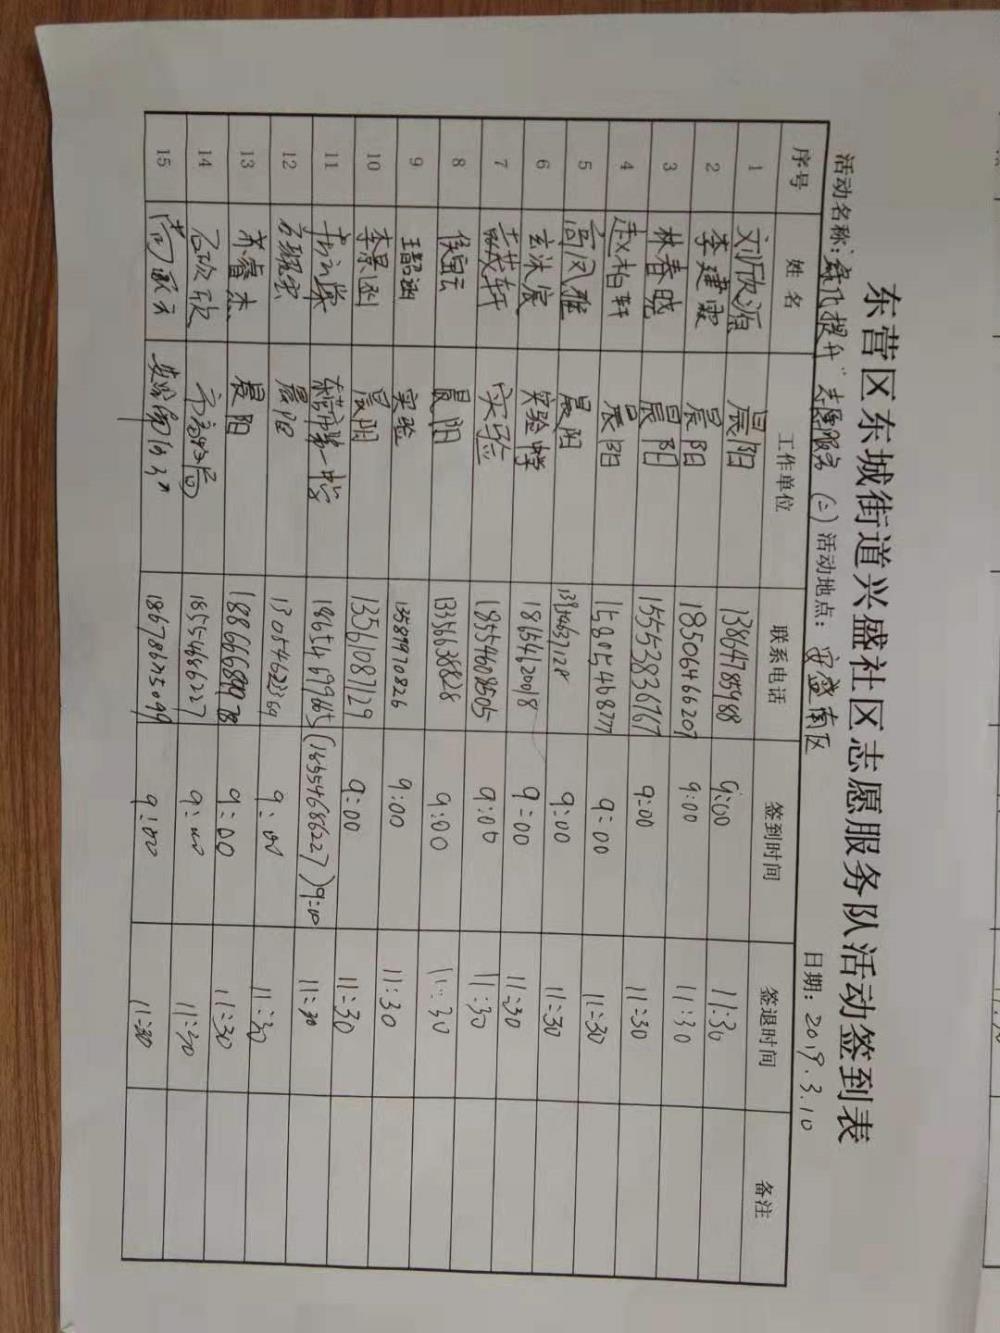 东营区东城街道兴盛社区志愿服务队活动签到表
活动名称：绿化提升"志愿服务 (二) 活动地点：安盛南区 日期：2019.3.10
序号 姓名 工作单位 联系电话 签到时间 签退时间 备注
1 刘欣源 晨阳 13864785988 9:00 11:30
2 李建霖 晨阳 18506466207 9:00 11:30
3 林春晓 晨阳 15553836767 9:00 11:30
4 赵柏轩 晨阳 15805468777 9:00 11:30
5 高凤雅 晨阳 9:00 11:30
6 玄沐宸 实验中学 18654620018 9:00 11:30
7 实验 18554608505 9:00 11:30
8 侯宝云 晨阳 13356638828 9:00 11:30
9 实验 13589970826 9:00 11:30
10 李景涵 晨阳 13561087129 9:00 11:30
11 东营市第一中学 (18554686227) 9:00 11:30
12 晨阳 13054623369 9:00 11:30
13 苏睿杰 晨阳 18866668978 9:00 11:30
14 18554686227 9:00 11:30
15 18678675099 9:00 11:30